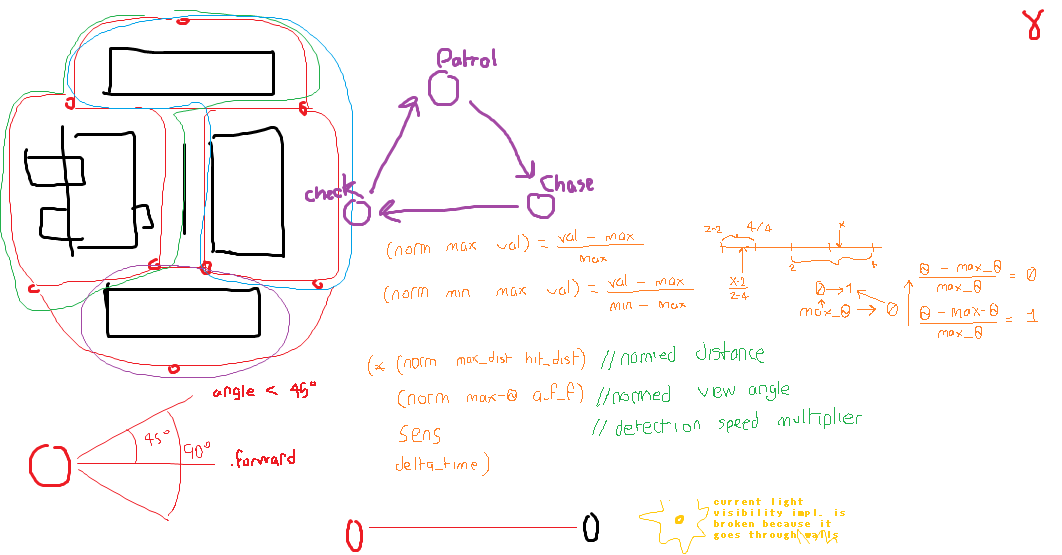 Patrol
Chase
check
(norm max val) = val - max / max
(norm min max val) = val - max / min - max
2-2 4-/4 x
2
x-2 / 2-4
0 → 1
max_θ → 0
θ - max_θ / max_θ = 0
θ - max-θ / max_θ = 1
(* (norm max_dist hit_dist) //normed distance
(norm max-θ a.f_f) //normed view angle
sens // detection speed multiplier
delta_time)
angle < 45°
45°
90°
.forward
current light
visibility impl. is
broken because it
goes through walls